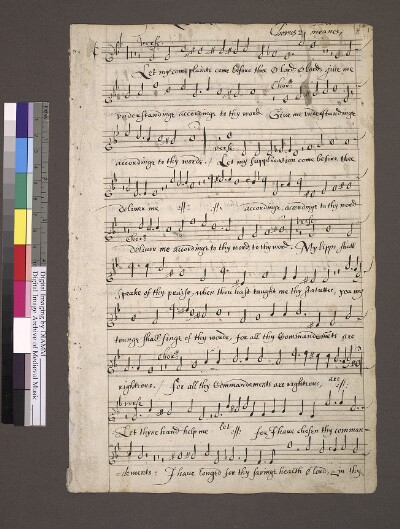 Chorus 2 meanes
verse
Let my complainte come before thee O Lord O Lord, giue me
Chor:
vnderstandinge accordinge to thy word. Giue me vnderstandinge
verse
accordinge to thy worde. Let my supplication come before thee
deliuer me :||: :||: accordinge, accordinge to thy word
Chor: verse
deliuer me accordinge to thy word, to thy word. My lipps shall
speake of thy praise, when thou hast taught me thy statutes, yea my
tounge shall singe of thy worde, for all thy Commandements are
Chor:
righteous. for all thy Commandements are righteous, are :||:
verse
Let thyne hand help me let :||: for I haue chosen thy comman-
dements: I haue longed for thy savinge health O lord, in thy
Digital Imaging by DIAMM
Digital Image Archive of Medieval Music